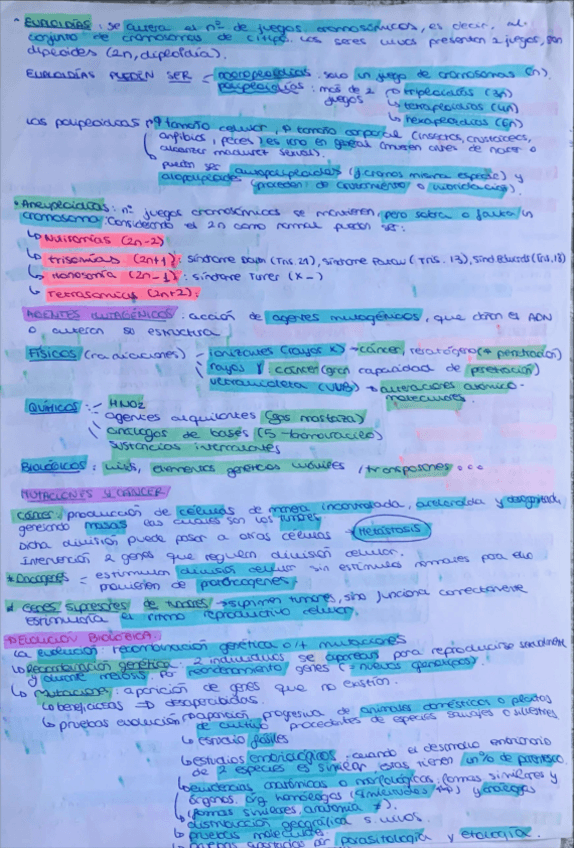 • EUPLOIDÍAS: se altera el nº de juegos cromosómicos, es decir, al
conjunto de cromosomas de c/tipo. Los seres vivos presentan 2 juegos, son
diploides (2n, diploidía).
EUPLOIDÍAS PUEDEN SER - monoploidías: solo un juego de cromosomas (n).
poliploidías: más de 2 juegos
↳ triploidías (3n)
↳ tetraploidías (4n)
↳ hexaploidías (6n)
Los poliploides tamaño celular, tamaño corporal (insectos, crustáceos,
anfibios, peces) es raro en general (mueren antes de nacer o
alcanzar madurez sexual).
pueden ser autopoliploides (y cromos misma especie) y
alopoliploides (proceden de cruzamiento o hibridación).
• Aneuploidías: nº juegos cromosómicos se mantienen, pero sobra o falta un
cromosoma. Considerando el 2n como normal pueden ser:
↳ Nulisomías (2n-2)
↳ trisomías (2n+1): síndrome Down (Tris. 21), síndrome Patau (Tris. 13), sínd Edwards (Tris. 18)
↳ Monosomía (2n-1): síndrome Turner (X-)
↳ Tetrasomías (2n+2).
AGENTES MUTAGÉNICOS: acción de agentes mutagénicos, que dañan el ADN
o alteran su estructura
FÍSICOS (radiaciones) - ionizantes (rayos X) → cáncer, (+ penetración)
rayos γ: cáncer (gran capacidad de penetración)
ultravioleta (UVB) → alteraciones atómico-
moleculares.
QUÍMICOS: - HNO2
agentes alquilantes (gas mostaza)
análogos de bases (5-bromouracilo)
sustancias intercalantes
BIOLÓGICOS: virus, elementos genéticos móviles, transposones...
MUTACIONES Y CÁNCER
Cáncer: producción de células de manera incontrolada, acelerada y desorganizada,
generando masas las cuales son los tumores
Dicha división puede pasar a otras células → METÁSTASIS
Intervención 2 genes que regulan división celular.
* Oncogenes = estimulan división celular sin estímulos normales para ello
provienen de protooncogenes.
* Genes supresores de tumores → suprimen tumores, si no funciona correctamente
estimularía el ritmo reproductivo celular.
EVOLUCIÓN BIOLÓGICA:
La evolución: recombinación genética o/+ mutaciones
↳ Recombinación genética: 2 individuos se aparean para reproducirse sexualmente
y durante meiosis. Por reordenamiento genes (= nuevos genotipos)
↳ Mutaciones: aparición de genes que no existían.
↳ beneficiosas ⇒ desapercibidas.
↳ pruebas evolución aparición progresiva de animales domésticos o plantas
de cultivo procedentes de especies salvajes o silvestres
↳ estudio fósiles
↳ estudios embriológicos: cuando el desarrollo embrionario
de 2 especies es similar estas tienen un % de parentesco.
↳ evidencias anatómicas o morfológicas: formas similares y
órganos. órg. homólogos y análogos
(formas similares, anatomía ≠).
↳ distribución geográfica s. vivos.
↳ pruebas moleculares
↳ pruebas aportadas por parasitología y etología.